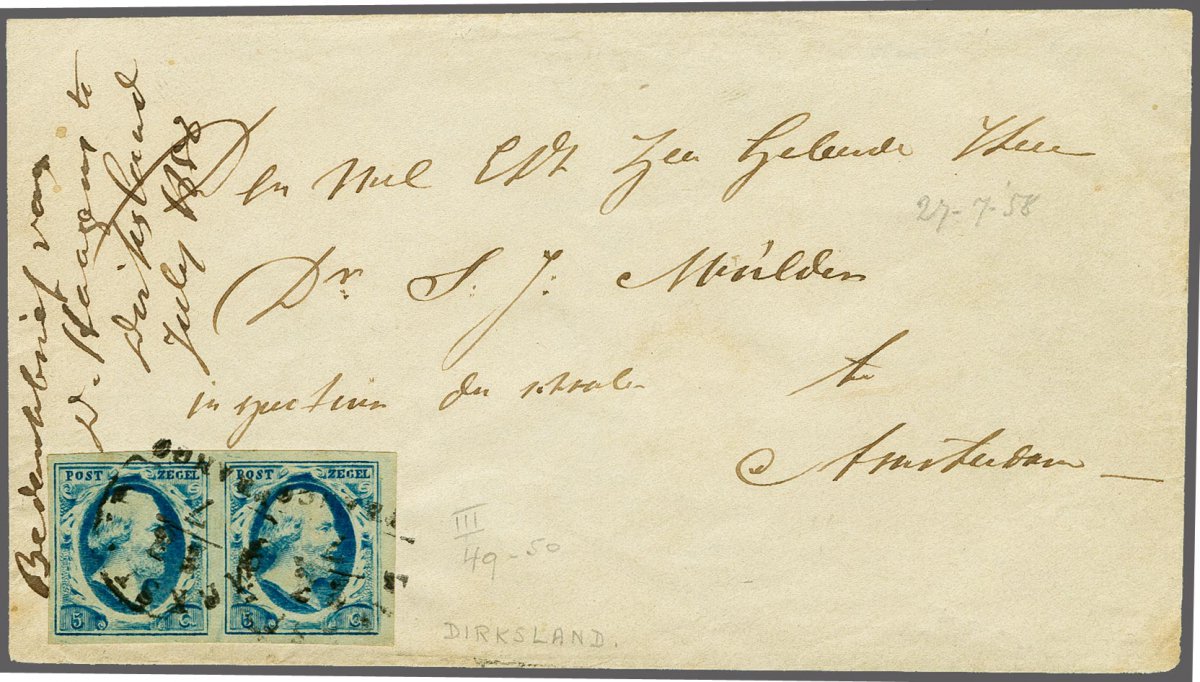 Den Wel Edl Zeer Geleerde Heer
Dr. S. J: Mülder
inspecteur der scholen te
Amsterdam
Bedankbrief van
D. Haagens te
Dirksland
July 1858
27-7-58
III
49-50
DIRKSLAND.
POST ZEGEL
5 C
POST ZEGEL
5 C